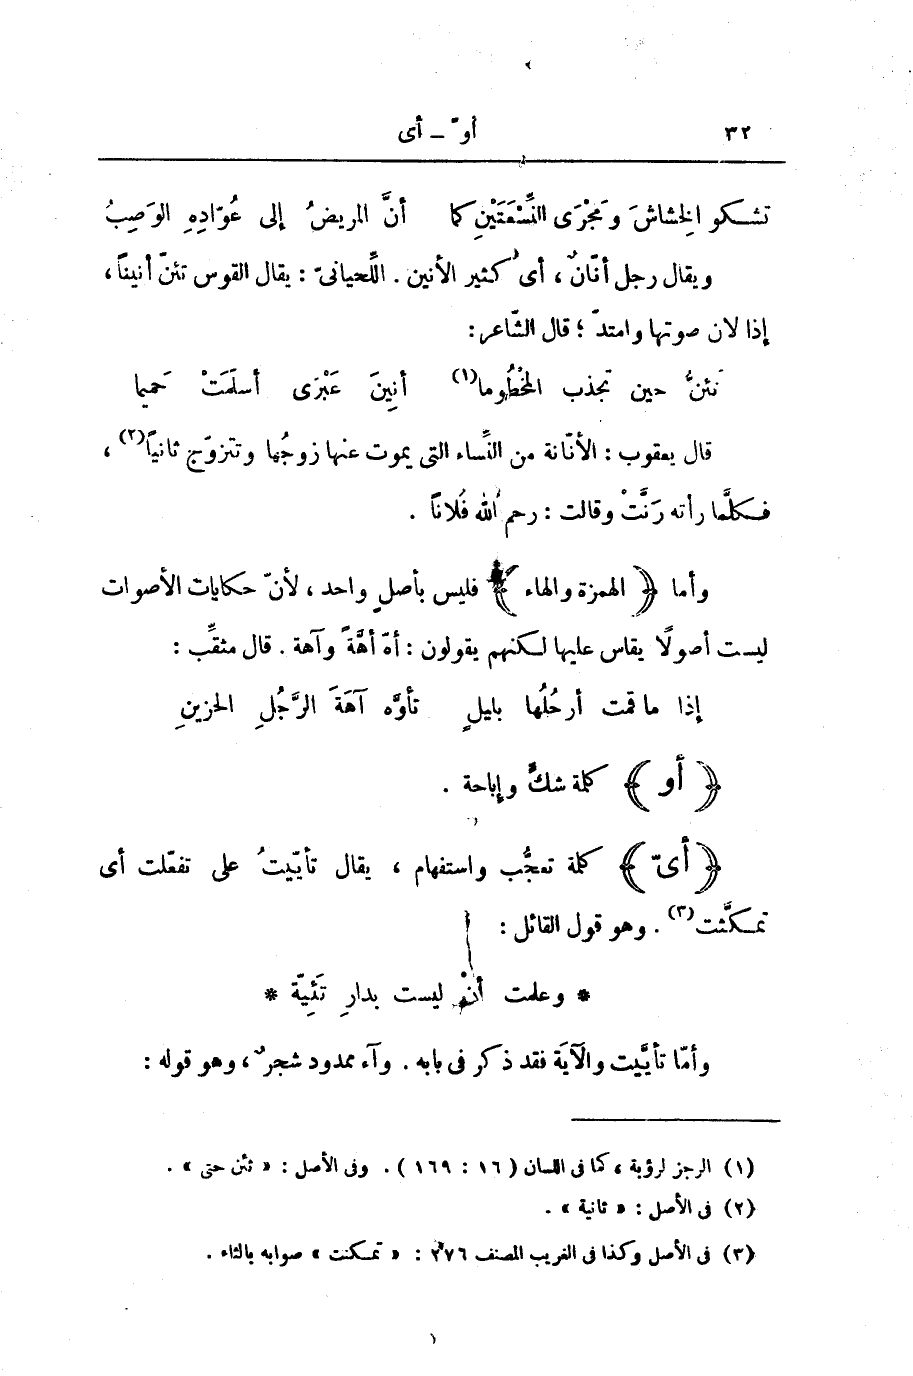 ٣٢ أوّ – أى
تشكو الخِشاشَ ومَجْرَى النِّسْعَتَيْنِ كما أنَّ المريضُ إلى عُوّادِهِ الوَصِبُ
ويقال رجل أنّانٌ، أى كثير الأنين. اللِّحيانىّ: يقال القوس تئنّ أنيناً،
إذا لان صوتها وامتدّ؛ قال الشّاعر:
تئنُّ حين تجذب المَخْطُوما(١) أنِينَ عَبْرَى أسلَمَتْ حَميما
قال يعقوب: الأنّانة من النِّساء التى يموت عنها زوجُها وتتزوّج ثانياً(٢)،
فكلَّما رأته رَنَّتْ وقالت: رحم اللهُ فُلاناً.
وأما ﴿ الهمزة والهاء ﴾ فليس بأصلٍ واحد، لأنّ حكايات الأصوات
ليست أصولًا يقاس عليها لكنهم يقولون: أهّ أهَّةً وآهة. قال مثقِّب:
إذا ما قمت أرحُلُها بليلٍ تأوَّه آهَةَ الرَّجُلِ الحزينِ
﴿ أو ﴾ كلمة شكٍّ وإباحة.
﴿ أىّ ﴾ كلمة تعجُّب واستفهام، يقال تأيّيتُ على تفعّلت أى
تمكَّثت(٣). وهو قول القائل:
* وعلمت أنْ ليست بدارِ تَئِيّة *
وأمّا تأيَّيت والآيَة فقد ذكر فى بابه. وآء ممدود شجرٌ، وهو قوله:
(١) الرجز لرؤبة، كما فى اللسان (١٦ : ١٦٩). وفى الأصل: « تئن حتى ».
(٢) فى الأصل: « ثانية ».
(٣) فى الأصل وكذا فى الغريب المصنف ٢٧٦: « تمكنت » صوابه بالثاء.